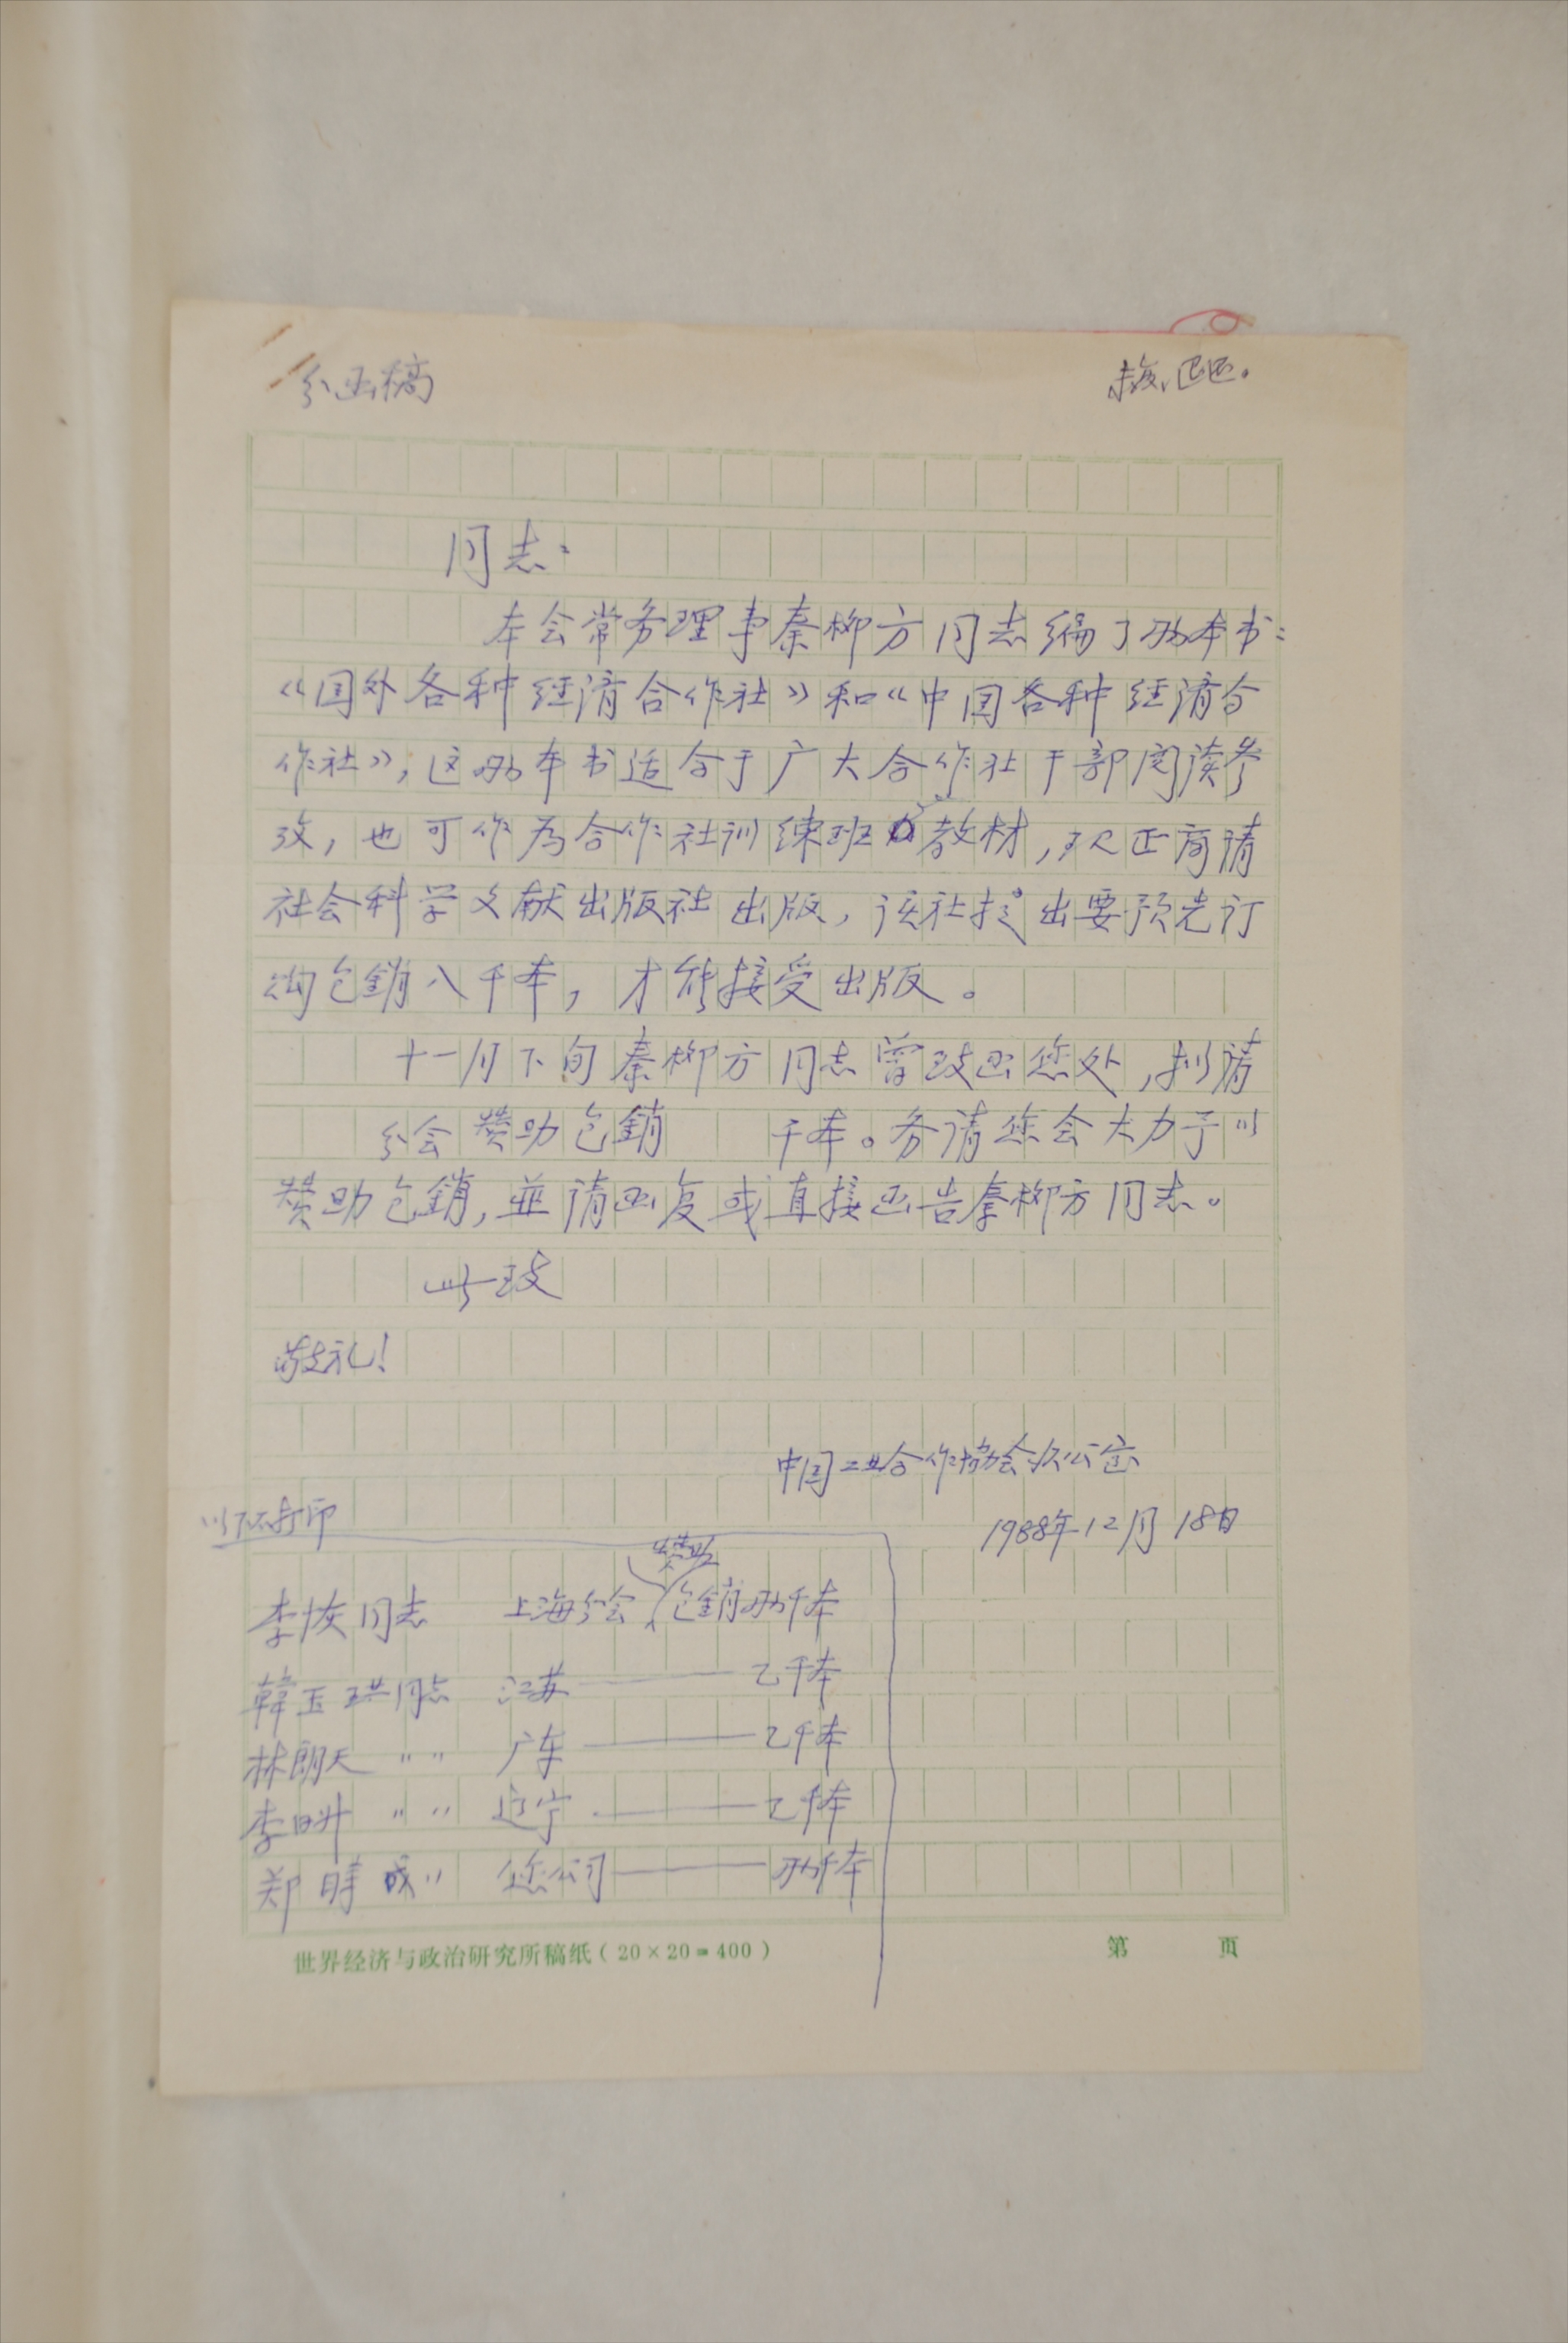 公函稿
同志：
本会常务理事秦柳方同志编了两本书：
《国外各种经济合作社》和《中国各种经济合
作社》，这两本书适合于广大合作社干部阅读参
考，也可作为合作社训练班的教材，现正商请
社会科学文献出版社出版，该社提出要预先订
购包銷八千本，才能接受出版。
十一月下旬秦柳方同志曾致函您处，拟请
分会赞助包銷 千本。务请您会大力予以
赞助包銷，並请函复或直接函告秦柳方同志。
此致
敬礼！
中国工业合作協会办公室
1988年12月18日
以下不打印
赞助
同志 上海分会 包銷两千本
韓玉 同志 江苏 —— 乙千本
林朗天 〃〃 广东 —— 乙千本
李 〃〃 辽宁 —— 乙千本
郑 成〃 您公司 —— 两千本
世界经济与政治研究所稿纸（20×20=400） 第 页